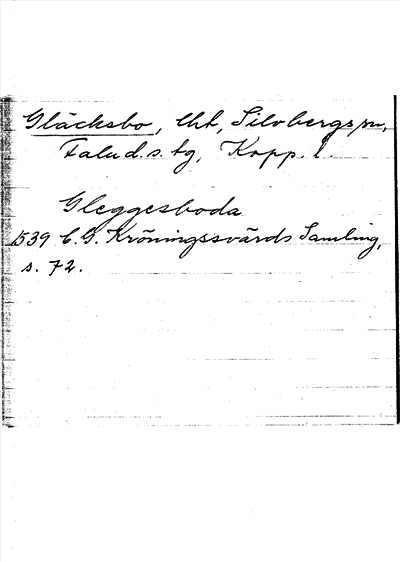 Gläcksbo, lht, Silvbergs sn,
Falu d. s. tg, Kopp. l.
Gleggesboda
1539 C. G. Kröningssvärds Samling,
s. 72.